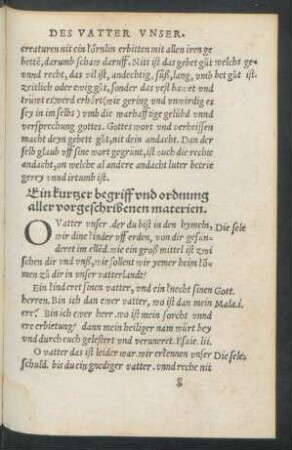 DES VATTER VNSER.
creaturen nit ein körnlin erbitten mit allen iren ge
bettē, darumb schaw daruff. Nitt ist das gebet gůt welchs ge-
vnnd recht, das vil ist, andechtig, süß, lang, vmb bet gůt ist.
zeitlich oder ewig gůt, sonder das vest bawet vnd
trüwt es werd erhört (wie gering vnd vnwirdig es
sey in im selbs) vmb die warhafftige gelübd vnnd
versprechung gottes. Gottes wort vnd verheissen
macht deyn gebett gůt, nit dein andacht. Dan der
selb glaub vff sine wort gegrünt, ist ouch die rechte
andacht, on welche al andere andacht luter betrie
gerey vnnd irtumb ist.
Ein kurtzer begriff vnd ordnung
aller vorgeschribenen materien.
O Vatter vnser der du bist in den hymeln, Die sele
wir dine kinder vff erden, von dir gesun-
deret im ellēd. wie ein groß mittel ist zwi
schen dir vnd vnß, wie sollent wir yemer heim kō-
men zů dir in vnser vatterlandt?
Ein kinderet sinen vatter, vnd ein knecht sinen Gott.
herren. Bin ich dan ewer vatter, wo ist dan mein Mala. i.
ere? Bin ich ewer herr. wo ist mein forcht vnnd
ere erbietung? dann mein heiliger nam würt bey
vnd durch euch gelestert vnd veruneret. Esaie. lii.
O vatter das ist leider war. wir erkennen vnser Die sele.
schuld. bis du ein gnediger vatter. vnnd reche nit
g